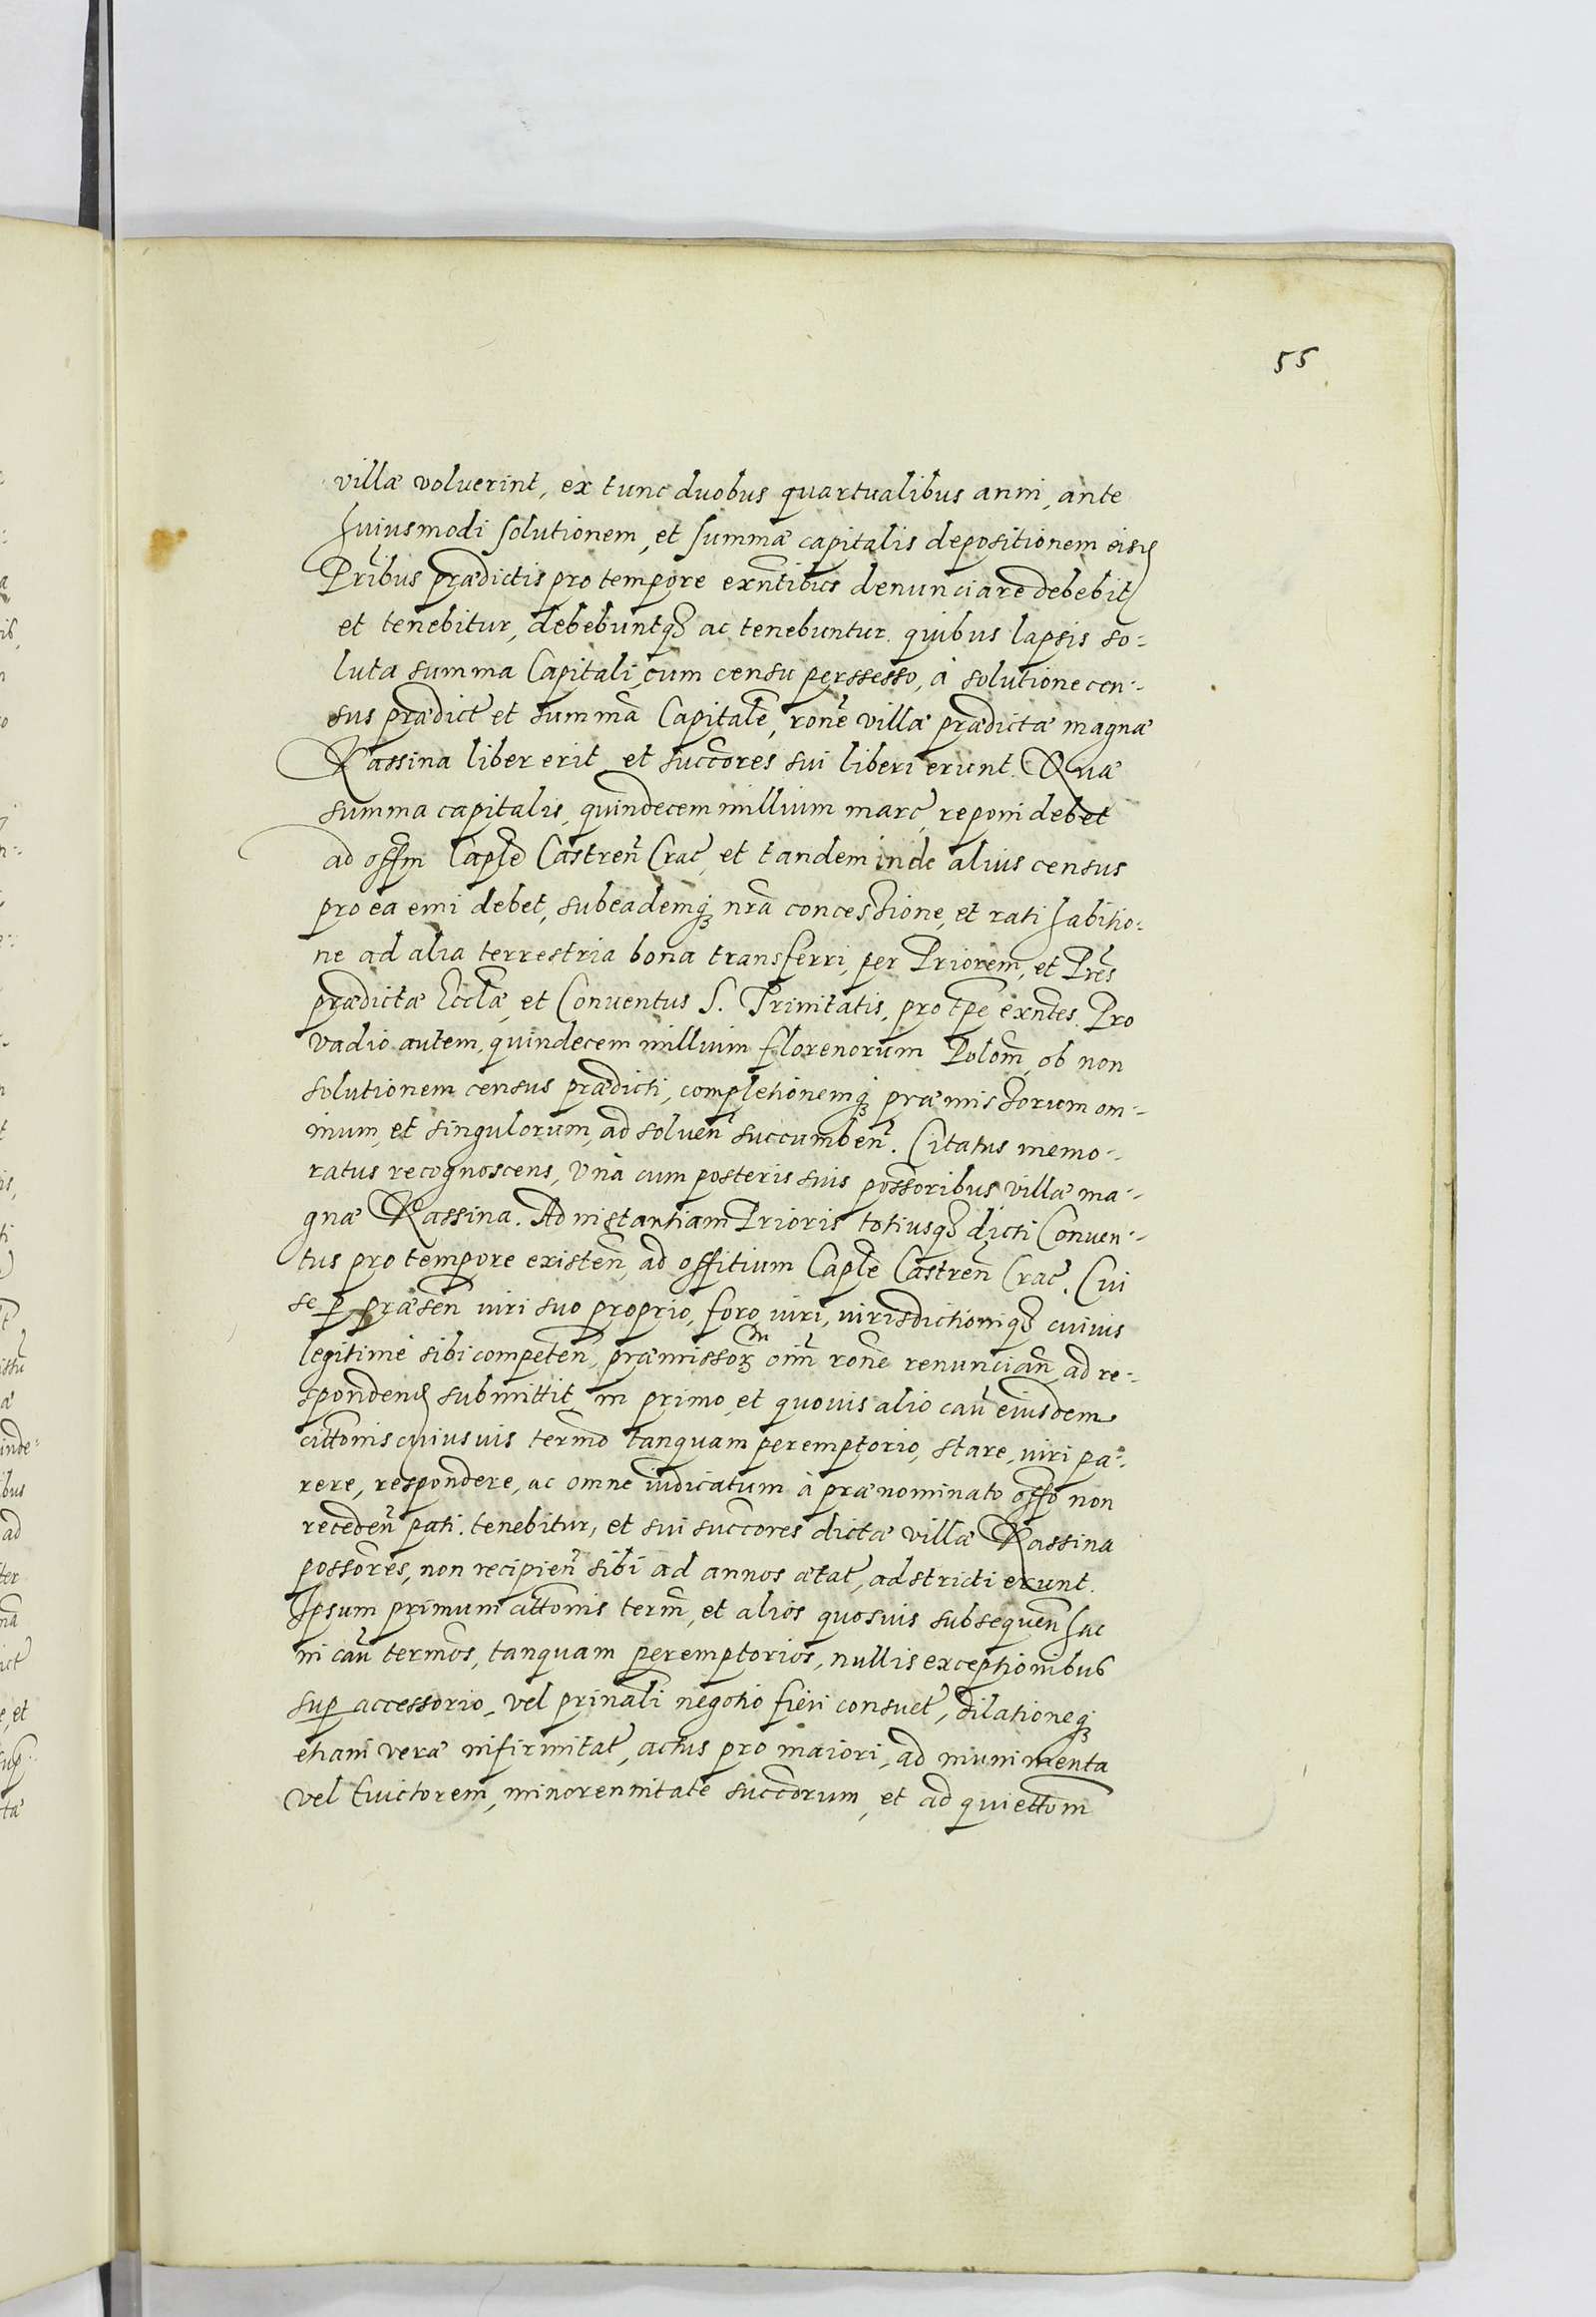 55
villæ voluerint, ex tunc duobus quartualibus anni, ante
huiusmodi solutionem, et summæ capitalis depositionem eisd
Pribus prædictis pro tempore exñtibus denunciare debebit
et tenebitur, debebuntqȝ ac tenebuntur. quibus lapsis so-
luta summa Capitali, cum censu perssesso, à solutione cen-
sus prædict et summa Capitale, rone villæ prædictæ magnæ
Rassina liber erit et succores sui liberi erunt. Quæ
summa capitalis, quindecem millium marc, reponi debet
ad offm Caple Castren Crac, et tandem inde alius census
pro ea emi debet, sub eademqȝ nra concessione, et rati habitio-
ne ad alia terrestria bona transferri, per Priorem, et Pres
prædictæ Ecclæ, et Conventus S. Trinitatis, pro tpe exntes. Pro
vadio autem, quindecem millium florenorum Polom, ob non
solutionem census prædicti, completionemqȝ præmissorum om-
nium, et singulorum, ad soluen succumben. Citatus memo-
ratus recognoscens, Vnà cum posteris suis possoribus villæ ma-
gnæ Rassina. Ad instantiam Prioris totiusqȝ dicti Conuen-
tus pro tempore existen, ad offitium Caple Castren Crac. Cui
se p præsen iuri suo proprio, foro, iuri, iurisdictioniqȝ cuiuis
legitimè sibi competen, præmissorȝ oim rone renuncian, ad re-
spondend submittit, in primo, et quouis alio cau eiusdem
cittonis cuiusuis termo tanquam peremptorio, stare, iuri pa-
rere, respondere, ac omne iudicatum à prænominato offo non
receden pati. tenebitur, et sui succores dictæ villæ Rassina
possores, non recipien sibi ad annos ætat, adstricti erunt.
Ipsum primum cittonis term, et alios quosuis subsequen hac
in cau termos, tanquam peremptorios, nullis exceptionibus
sup accessorio, vel prinali negotio fieri consuet, dilationeqȝ
etiam veræ infirmitat, actus pro maiori, ad munimenta
vel Euictorem, minorennitate succorum, et ad quiettom